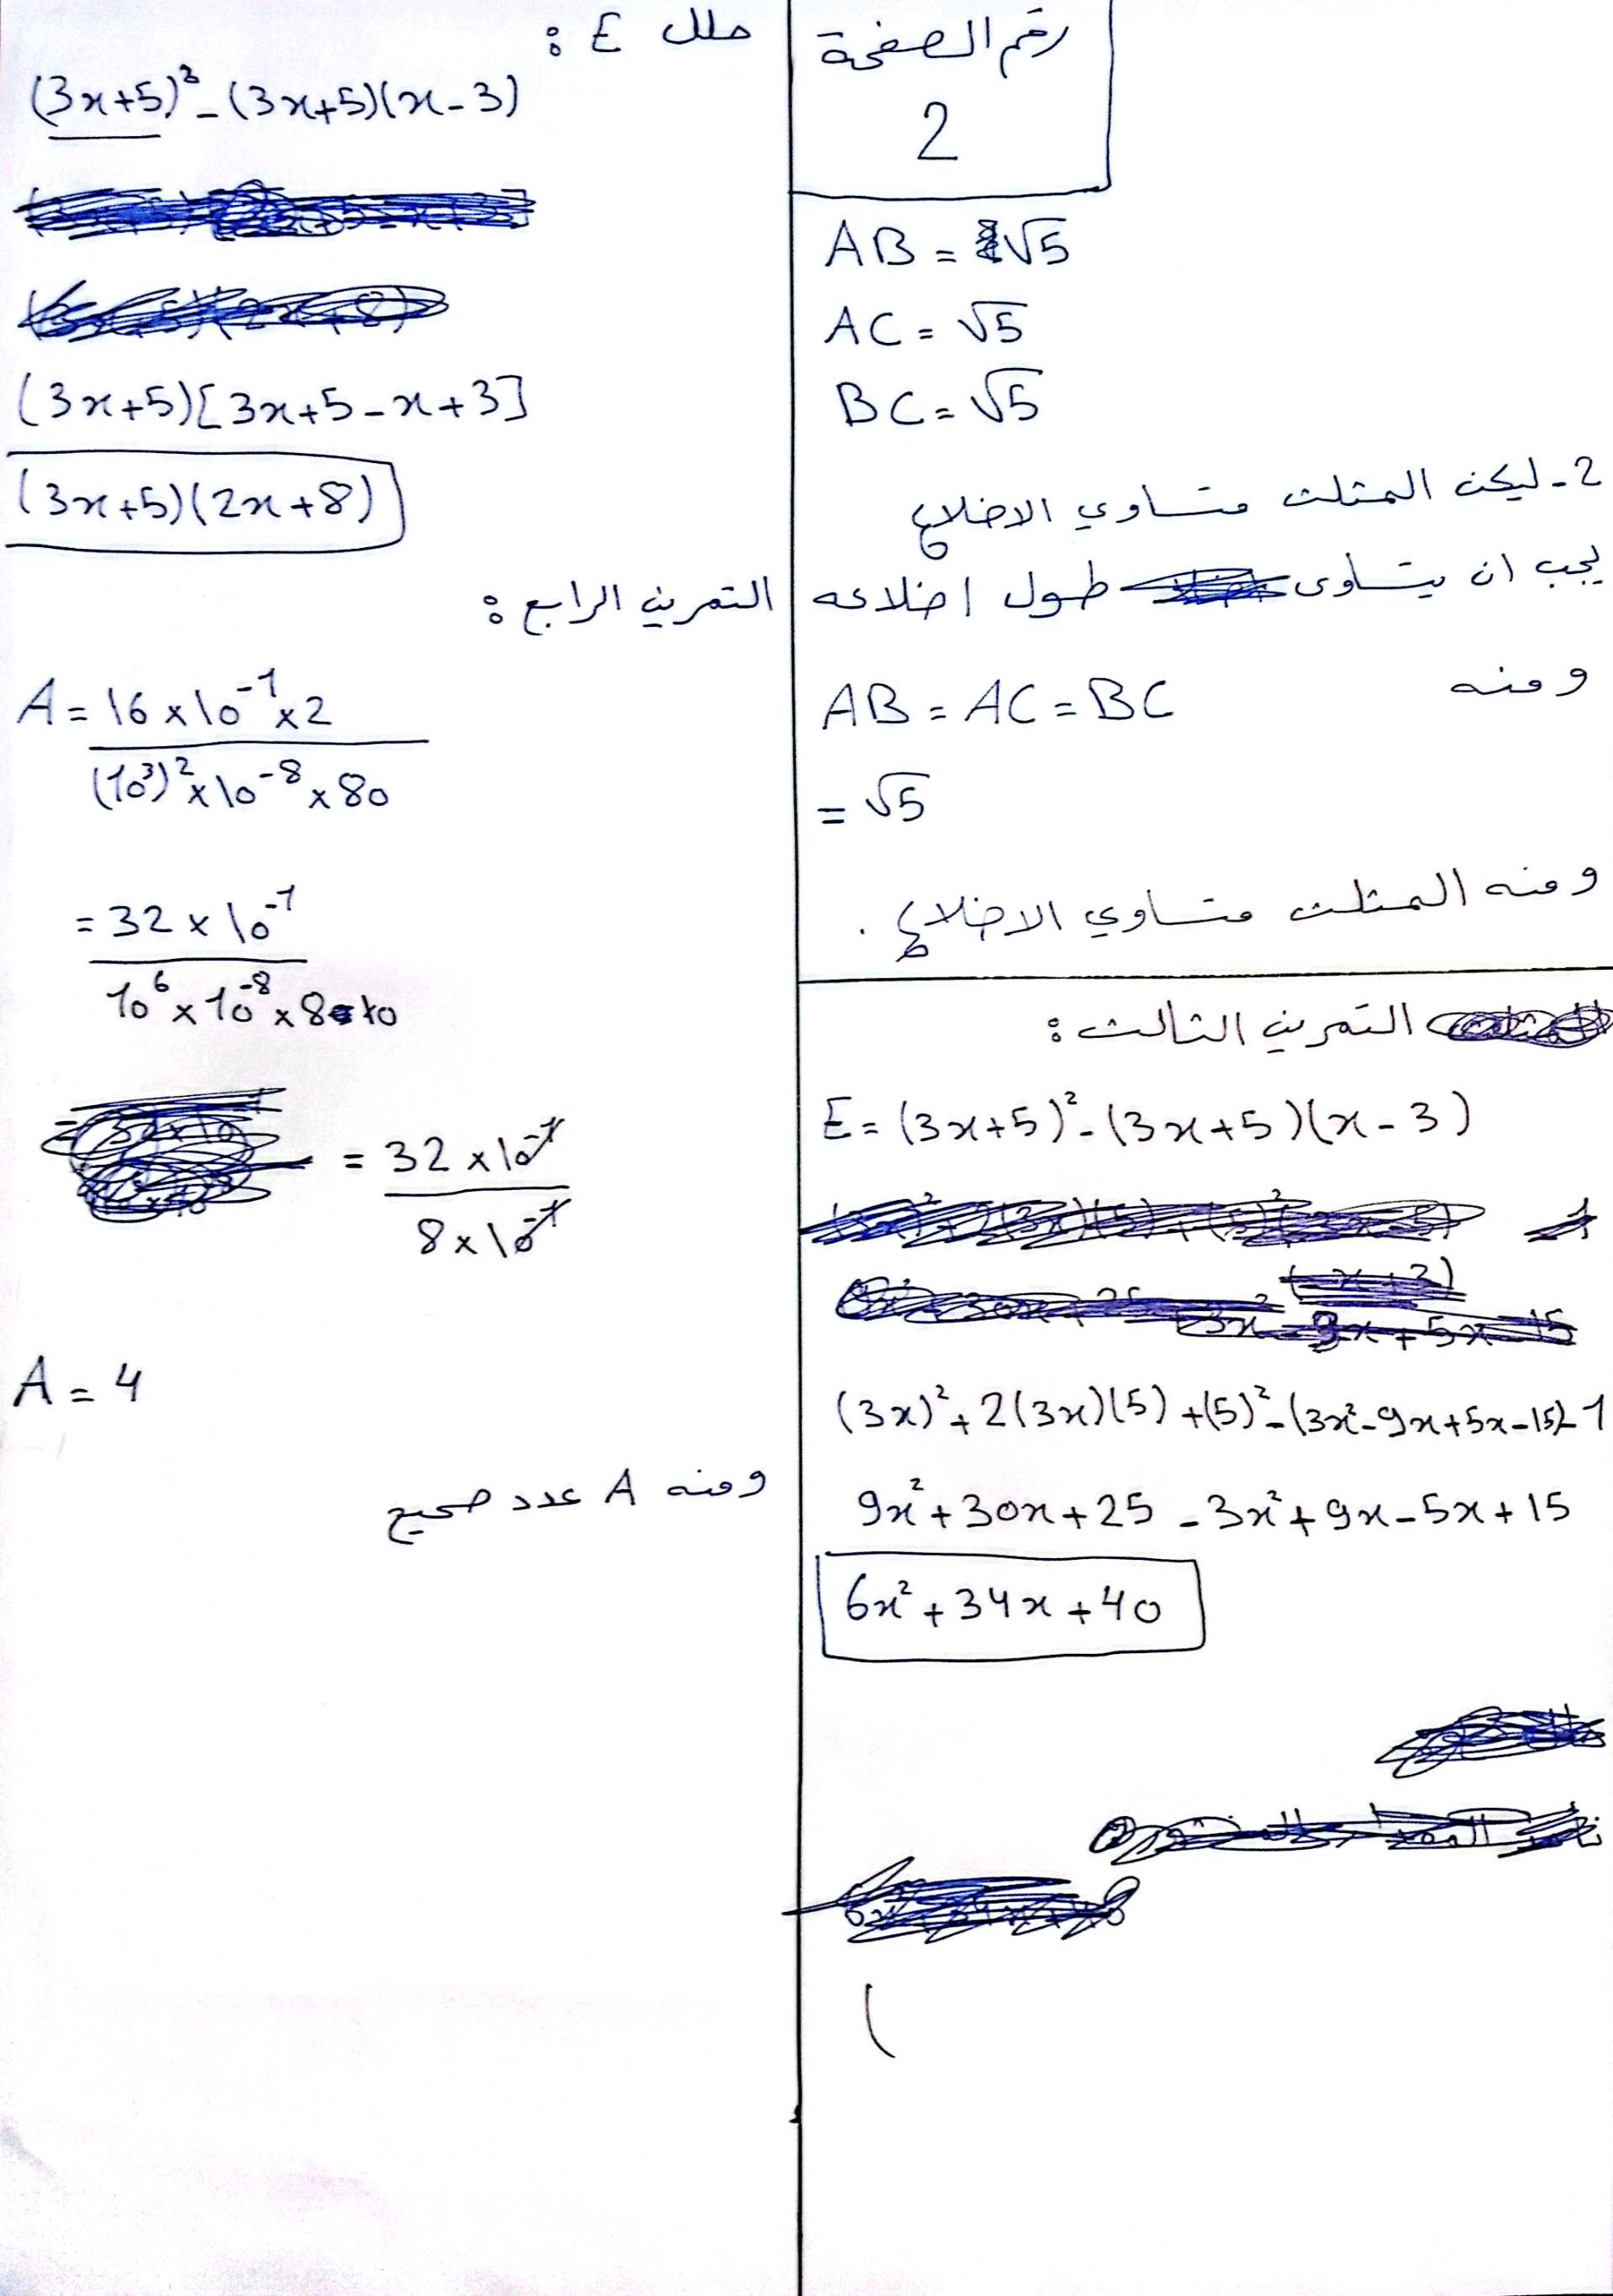 رقم الصفحة
2
AB = √5
AC = √5
BC = √5
2- ليكن المثلث متساوي الاضلاع
يجب ان يتساوى طول اضلاعه
ومنه
AB = AC = BC
= √5
ومنه المثلث متساوي الاضلاع .
التمرين الثالث :
E = (3x+5)² - (3x+5)(x-3)
(3x)² + 2(3x)(5) + (5)² - (3x² - 9x + 5x - 15) -1
9x² + 30x + 25 - 3x² + 9x - 5x + 15
6x² + 34x + 40
حلل E :
(3x+5)² - (3x+5)(x-3)
(3x+5)[3x+5-x+3]
(3x+5)(2x+8)
التمرين الرابع :
A = 16 × 10⁻¹ × 2
(10³)² × 10⁻⁸ × 80
= 32 × 10⁻¹
10⁶ × 10⁻⁸ × 8 × 10
= 32 × 10⁻¹
8 × 10⁻¹
A = 4
ومنه A عدد صحيح